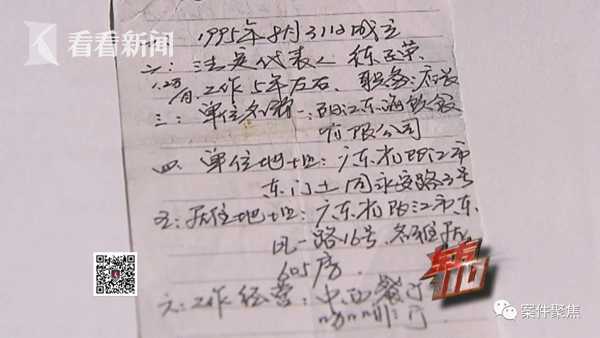 看看新闻
1995年8月31日成立
二:法定代表人 练正荣.
工作5年左右. 职务:店长
三:单位名称:阳江东海饮食
有限公司
四. 单位地址:广东省阳江市
东门土同永安路3号
五:居住地址:广东省阳江市东
风一路16号.
605房.
六:工作经营:中西餐厅
案件聚焦